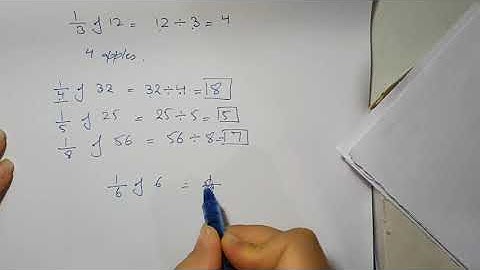 1/3 of 12 = 12 ÷ 3 = 4
4 apples.
1/4 of 32 = 32 ÷ 4 = 8
1/5 of 25 = 25 ÷ 5 = 5
1/8 of 56 = 56 ÷ 8 = 7
1/6 of 6 =